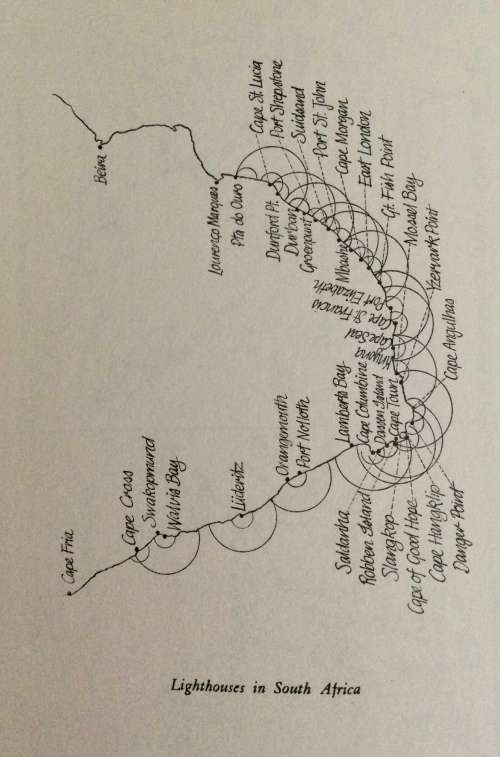 Cape Fria
Cape Cross
Swakopmund
Walvis Bay
Lüderitz
Orangemouth
Port Nolloth
Lamberts Bay
Cape Columbine
Dassen Island
Cape Town
Saldanha
Robben Island
Slangkop
Cape of Good Hope
Cape Hangklip
Danger Point
Cape Angulhas
Yzervark Point
Mossel Bay
Knysna
Cape Seal
Cape St. Francis
Port Elizabeth
Gt. Fish Point
East London
Cape Morgan
Mbashe
Port St. John
Suidsand
Port Shepstone
Groenpunt
Durban
Dunford Pt.
Cape St. Lucia
Pta do Ouro
Lourenço Marques
Beira
Lighthouses in South Africa